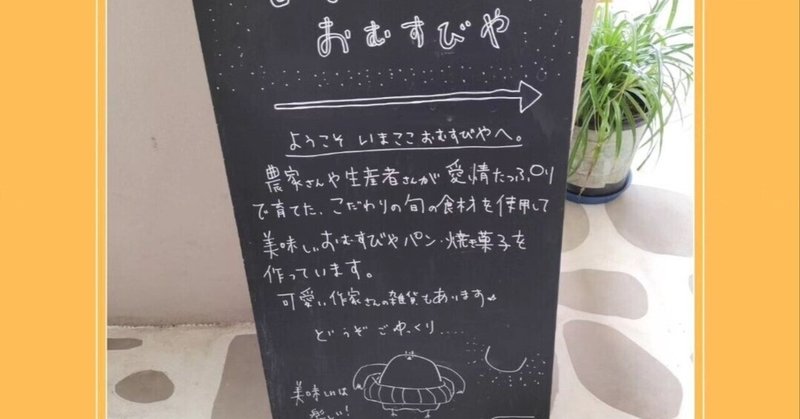 おむすびや
ようこそ いまここおむすびやへ。
農家さんや生産者さんが愛情たっぷり
で育てた、こだわりの旬の食材を使用して
美味しいおむすびやパン・焼き菓子を
作っています。
可愛い作家さんの雑貨もあります
どうぞごゆっくり.....
美味しいは